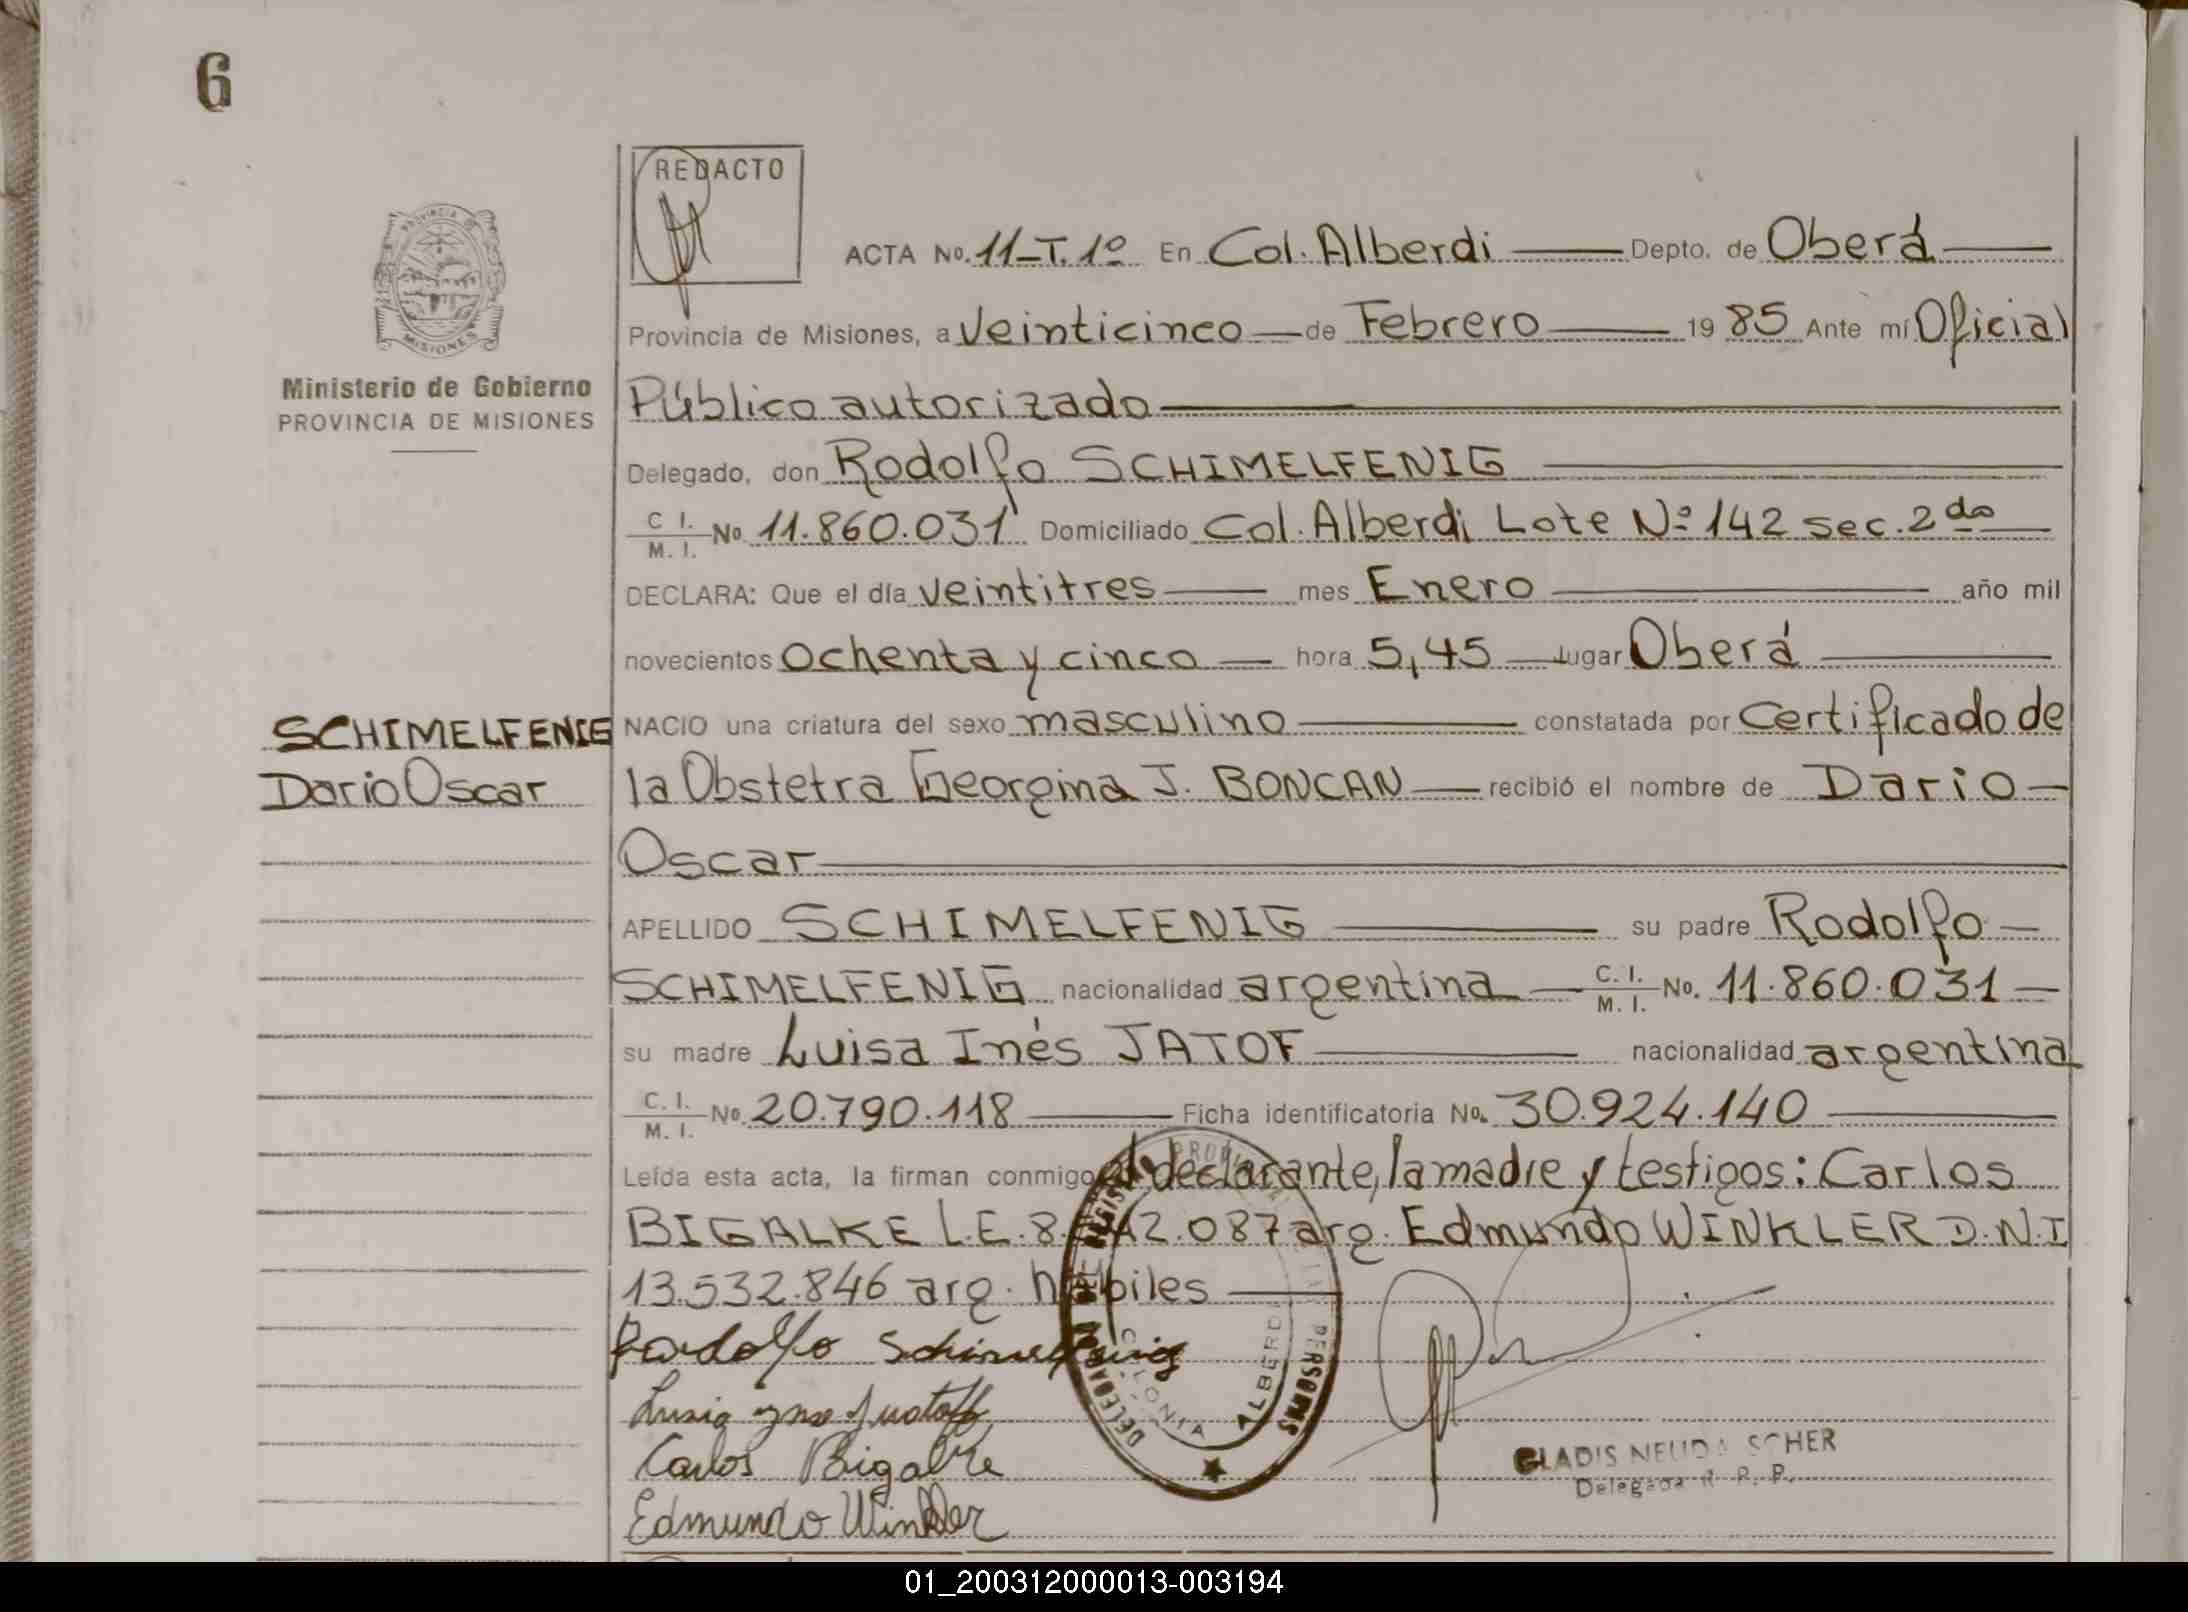 6
REDACTO
PROVINCIA DE
MISIONES
Ministerio de Gobierno
PROVINCIA DE MISIONES
ACTA No. 11-T. 1º En Col. Alberdi Depto. de Oberá
Provincia de Misiones, a veinticinco de Febrero 19 85 Ante mí Oficial
Público autorizado
Delegado, don Rodolfo SCHIMELFENIG
C. I. M. I. No 11.860.031 Domiciliado Col. Alberdi Lote Nº 142 sec. 2da
DECLARA: Que el día veintitres mes Enero año mil
novecientos ochenta y cinco hora 5,45 lugar Oberá
SCHIMELFENIG
Dario Oscar
NACIO una criatura del sexo masculino constatada por Certificado de
la Obstetra Georgina J. BONCAN recibió el nombre de Dario
Oscar
APELLIDO SCHIMELFENIG su padre Rodolfo
SCHIMELFENIG nacionalidad argentina C. I. M. I. No. 11.860.031
su madre Luisa Inés JATOF nacionalidad argentina
C. I. M. I. No. 20.790.118 Ficha identificatoria No. 30.924.140
Leída esta acta, la firman conmigo el declarante, la madre y testigos: Carlos
BIGALKE L.E. 8. 087 arg. Edmundo WINKLER D.N.I
13.532.846 arg. hábiles
Rodolfo Schimelfenig
Carlos Bigalke
Edmundo Winkler
COLONIA ALBERDI
PERSONAS
GLADIS NEUDA SCHER
Delegada R. P. P.
01_200312000013-003194